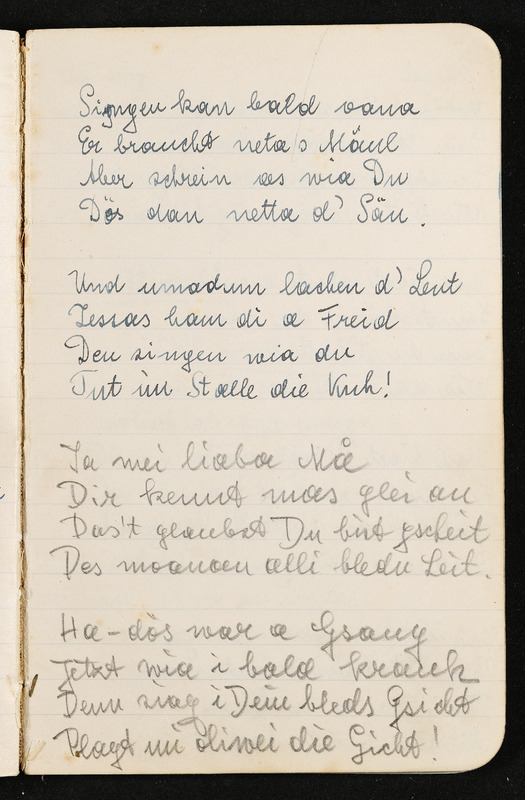 Singen kan bald oana
Er braucht neta's Mäul
Aber schrein as wia Du
Dös dan netta d' Säu.
Und umadum lachen d' Leut
Jessas ham di a Freid
Den singen wia du
Tut im Stalle die Kuh!
Ja mei liaba Må
Dir kennt mas glei an
Das't glaubst Du bist gscheit
Des moanan alli bledn Leit.
Ha-dös war a Gsang
Jetzt wia i bald krank
Denn siag i Dein bleds Gsicht
Plagt mi oliwei die Gicht!